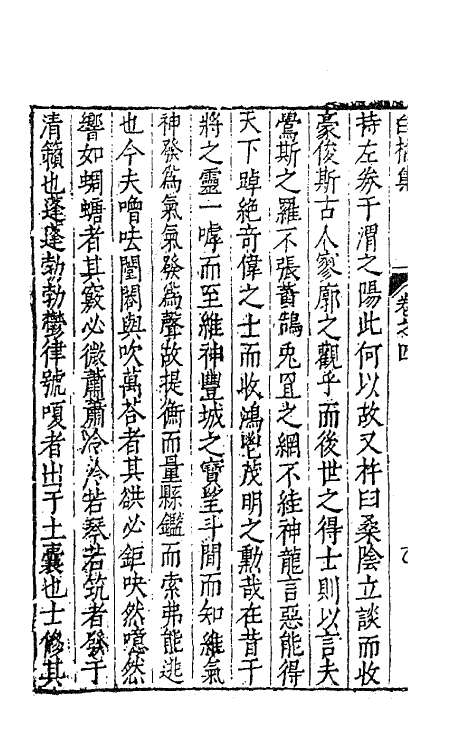 白榆集
卷之四
持左券于渭之陽此何以故又杵臼桑陰立談而收
豪俊斯古人寥廓之觀乎而後世之得士則以言夫
鸒斯之羅不張黃鵠兔罝之網不絓神龍言惡能得
天下踔絶奇偉之士而收鴻邕茂明之勳哉在昔干
將之靈一嘑而至維神豐城之寶望斗間而知維氣
神發爲氣氣發爲聲故提衡而量縣鑑而索弗能逃
也今夫噲呿闛閤與吹萬荅者其谼必鉅吷然噫然
響如蜩螗者其竅必微蕭蕭泠泠若琴若筑者發于
清籟也蓬蓬勃勃鬱律號嗄者出于土囊也士修其